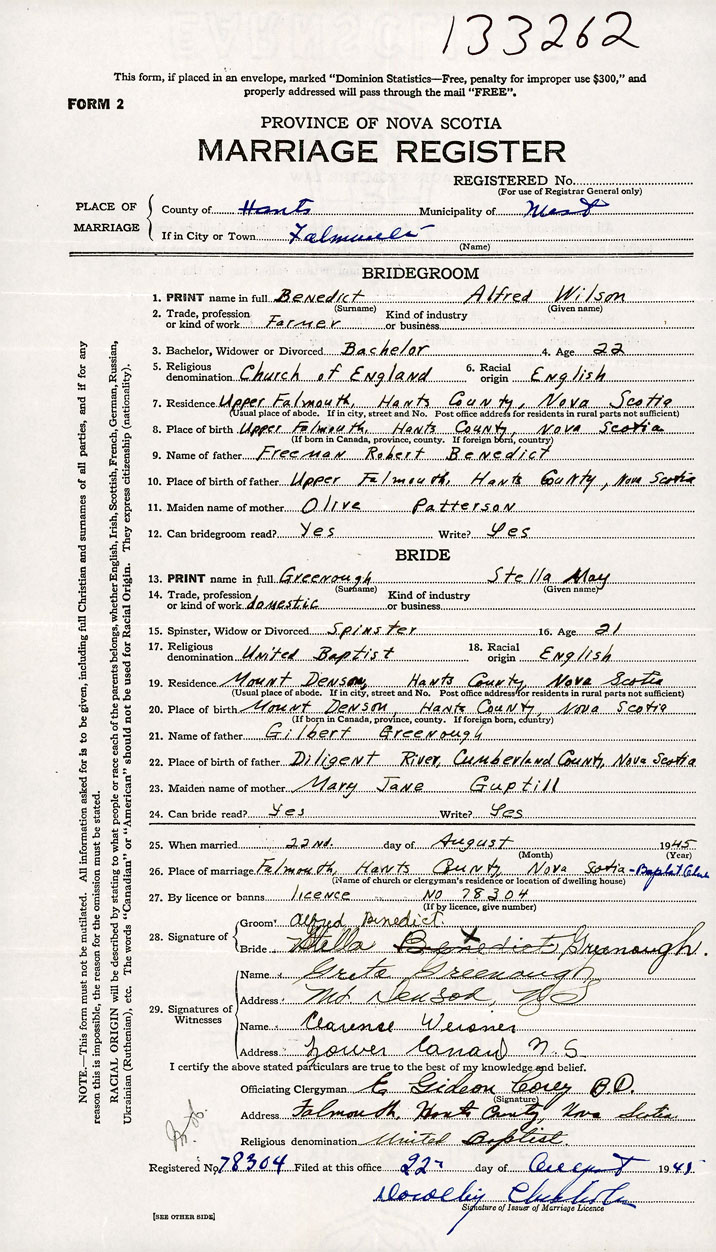 133262
This form, if placed in an envelope, marked "Dominion Statistics—Free, penalty for improper use $300," and
properly addressed will pass through the mail "FREE".
FORM 2
PROVINCE OF NOVA SCOTIA
MARRIAGE REGISTER
REGISTERED No.
(For use of Registrar General only)
PLACE OF MARRIAGE
County of Hants Municipality of West
If in City or Town Falmouth
(Name)
BRIDEGROOM
1. PRINT name in full Benedict Alfred Wilson
(Surname) (Given name)
2. Trade, profession or kind of work Farmer Kind of industry or business
3. Bachelor, Widower or Divorced Bachelor 4. Age 22
5. Religious denomination Church of England 6. Racial origin English
7. Residence Upper Falmouth, Hants County, Nova Scotia
(Usual place of abode. If in city, street and No. Post office address for residents in rural parts not sufficient)
8. Place of birth Upper Falmouth, Hants County, Nova Scotia
(If born in Canada, province, county. If foreign born, country)
9. Name of father Freeman Robert Benedict
10. Place of birth of father Upper Falmouth, Hants County, Nova Scotia
11. Maiden name of mother Olive Patterson
12. Can bridegroom read? Yes Write? Yes
BRIDE
13. PRINT name in full Greenough Stella May
(Surname) (Given name)
14. Trade, profession or kind of work domestic Kind of industry or business
15. Spinster, Widow or Divorced Spinster 16. Age 21
17. Religious denomination United Baptist 18. Racial origin English
19. Residence Mount Denson, Hants County, Nova Scotia
(Usual place of abode. If in city, street and No. Post office address for residents in rural parts not sufficient)
20. Place of birth Mount Denson, Hants County, Nova Scotia
(If born in Canada, province, county. If foreign born, country)
21. Name of father Gilbert Greenough
22. Place of birth of father Diligent River, Cumberland County, Nova Scotia
23. Maiden name of mother Mary Jane Guptill
24. Can bride read? Yes Write? Yes
25. When married 22nd. day of August 1945
(Month) (Year)
26. Place of marriage Falmouth, Hants County Nova Scotia - Baptist
(Name of church or clergyman's residence or location of dwelling house)
27. By licence or banns licence NO 78304
(If by licence, give number)
28. Signature of
Groom Alfred Benedict.
Bride Stella Benedict X Greenough.
29. Signatures of Witnesses
Name Greta Greenough
Address Mt Denson, NS
Name Clarence
Address Lower Canard N.S
I certify the above stated particulars are true to the best of my knowledge and belief.
Officiating Clergyman E Gideon Corey B.D.
(Signature)
Address Falmouth, Hants County, Nova Scotia.
Religious denomination United Baptist.
Registered No. 78304 Filed at this office 22 day of August 1945
Signature of Issuer of Marriage Licence
[SEE OTHER SIDE]
NOTE.—This form must not be mutilated. All information asked for is to be given, including full Christian and surnames of all parties, and if for any
reason this is impossible, the reason for the omission must be stated.
RACIAL ORIGIN will be described by stating to what people or race each of the parents belongs, whether English, Irish, Scottish, French, German, Russian,
Ukrainian (Ruthenian), etc. The words "Canadian" or "American" should not be used for Racial Origin. They express citizenship (nationality).